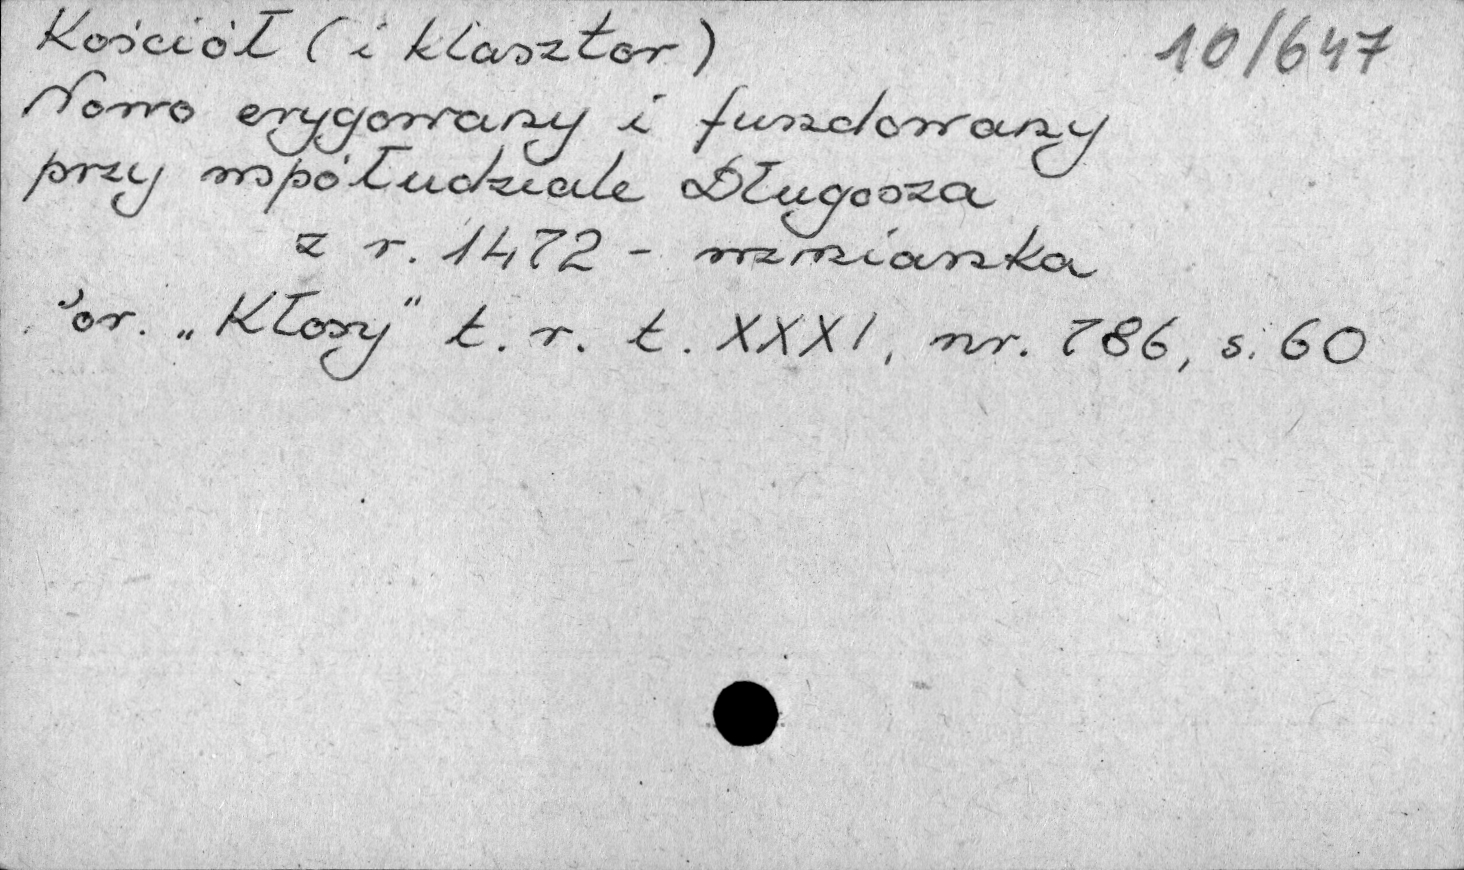 Kościół (i klasztor) 10/647
Nowo erygowany i fundowany
przy współudziale Długosza
z r. 1472 - wzmianka
Por. „Kłosy" t. r. t. XXXI, nr. 786, s. 60